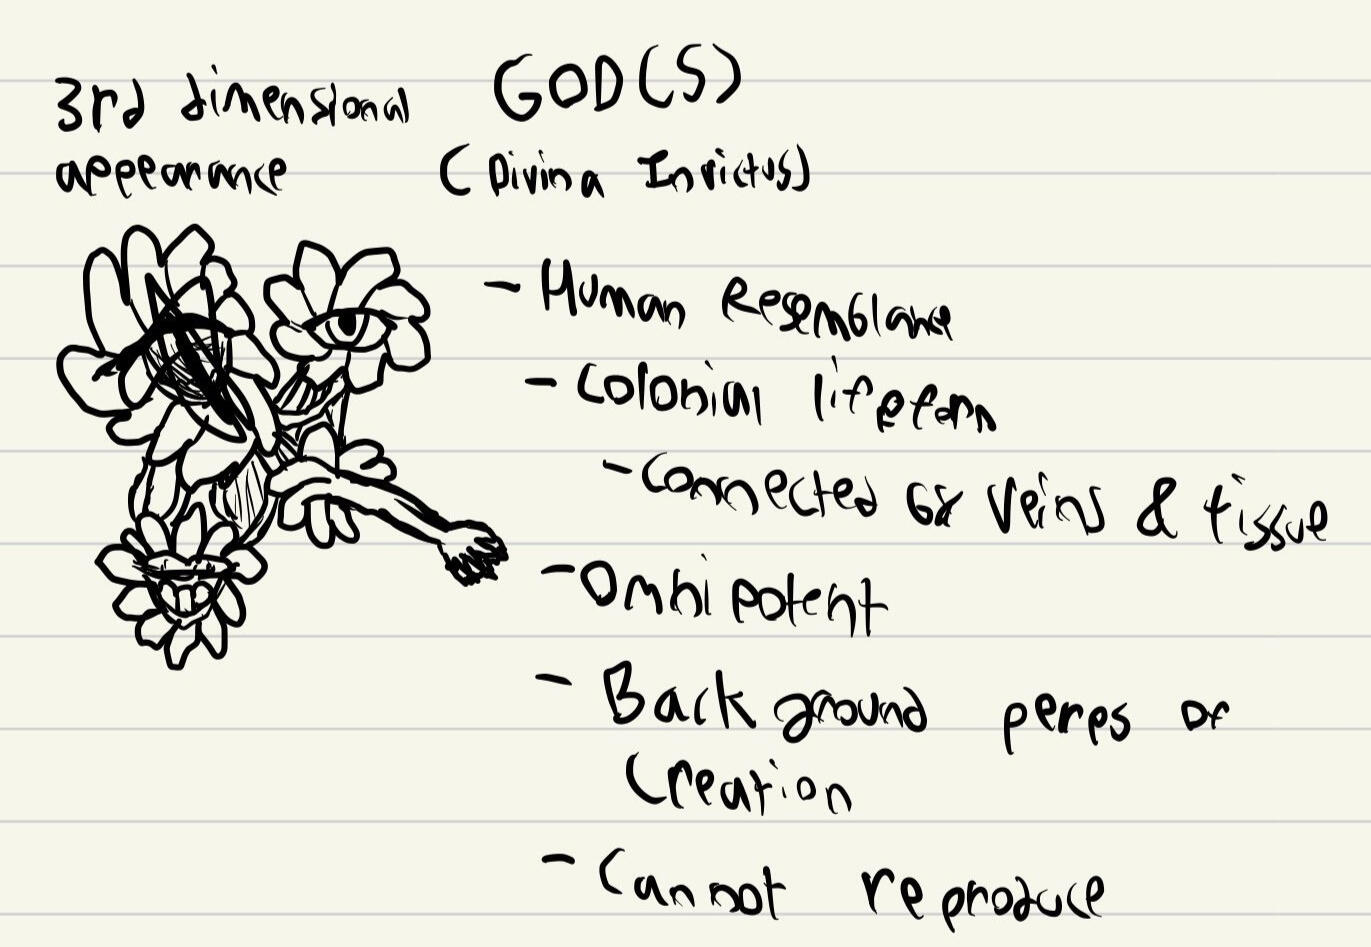 GOD(S)
3rd dimensional
appearance
(Divina Invictus)
- Human Resemblance
- Colonial lifeform
- Connected by veins & tissue
- Omnipotent
- Background perps of
Creation
- Cannot reproduce